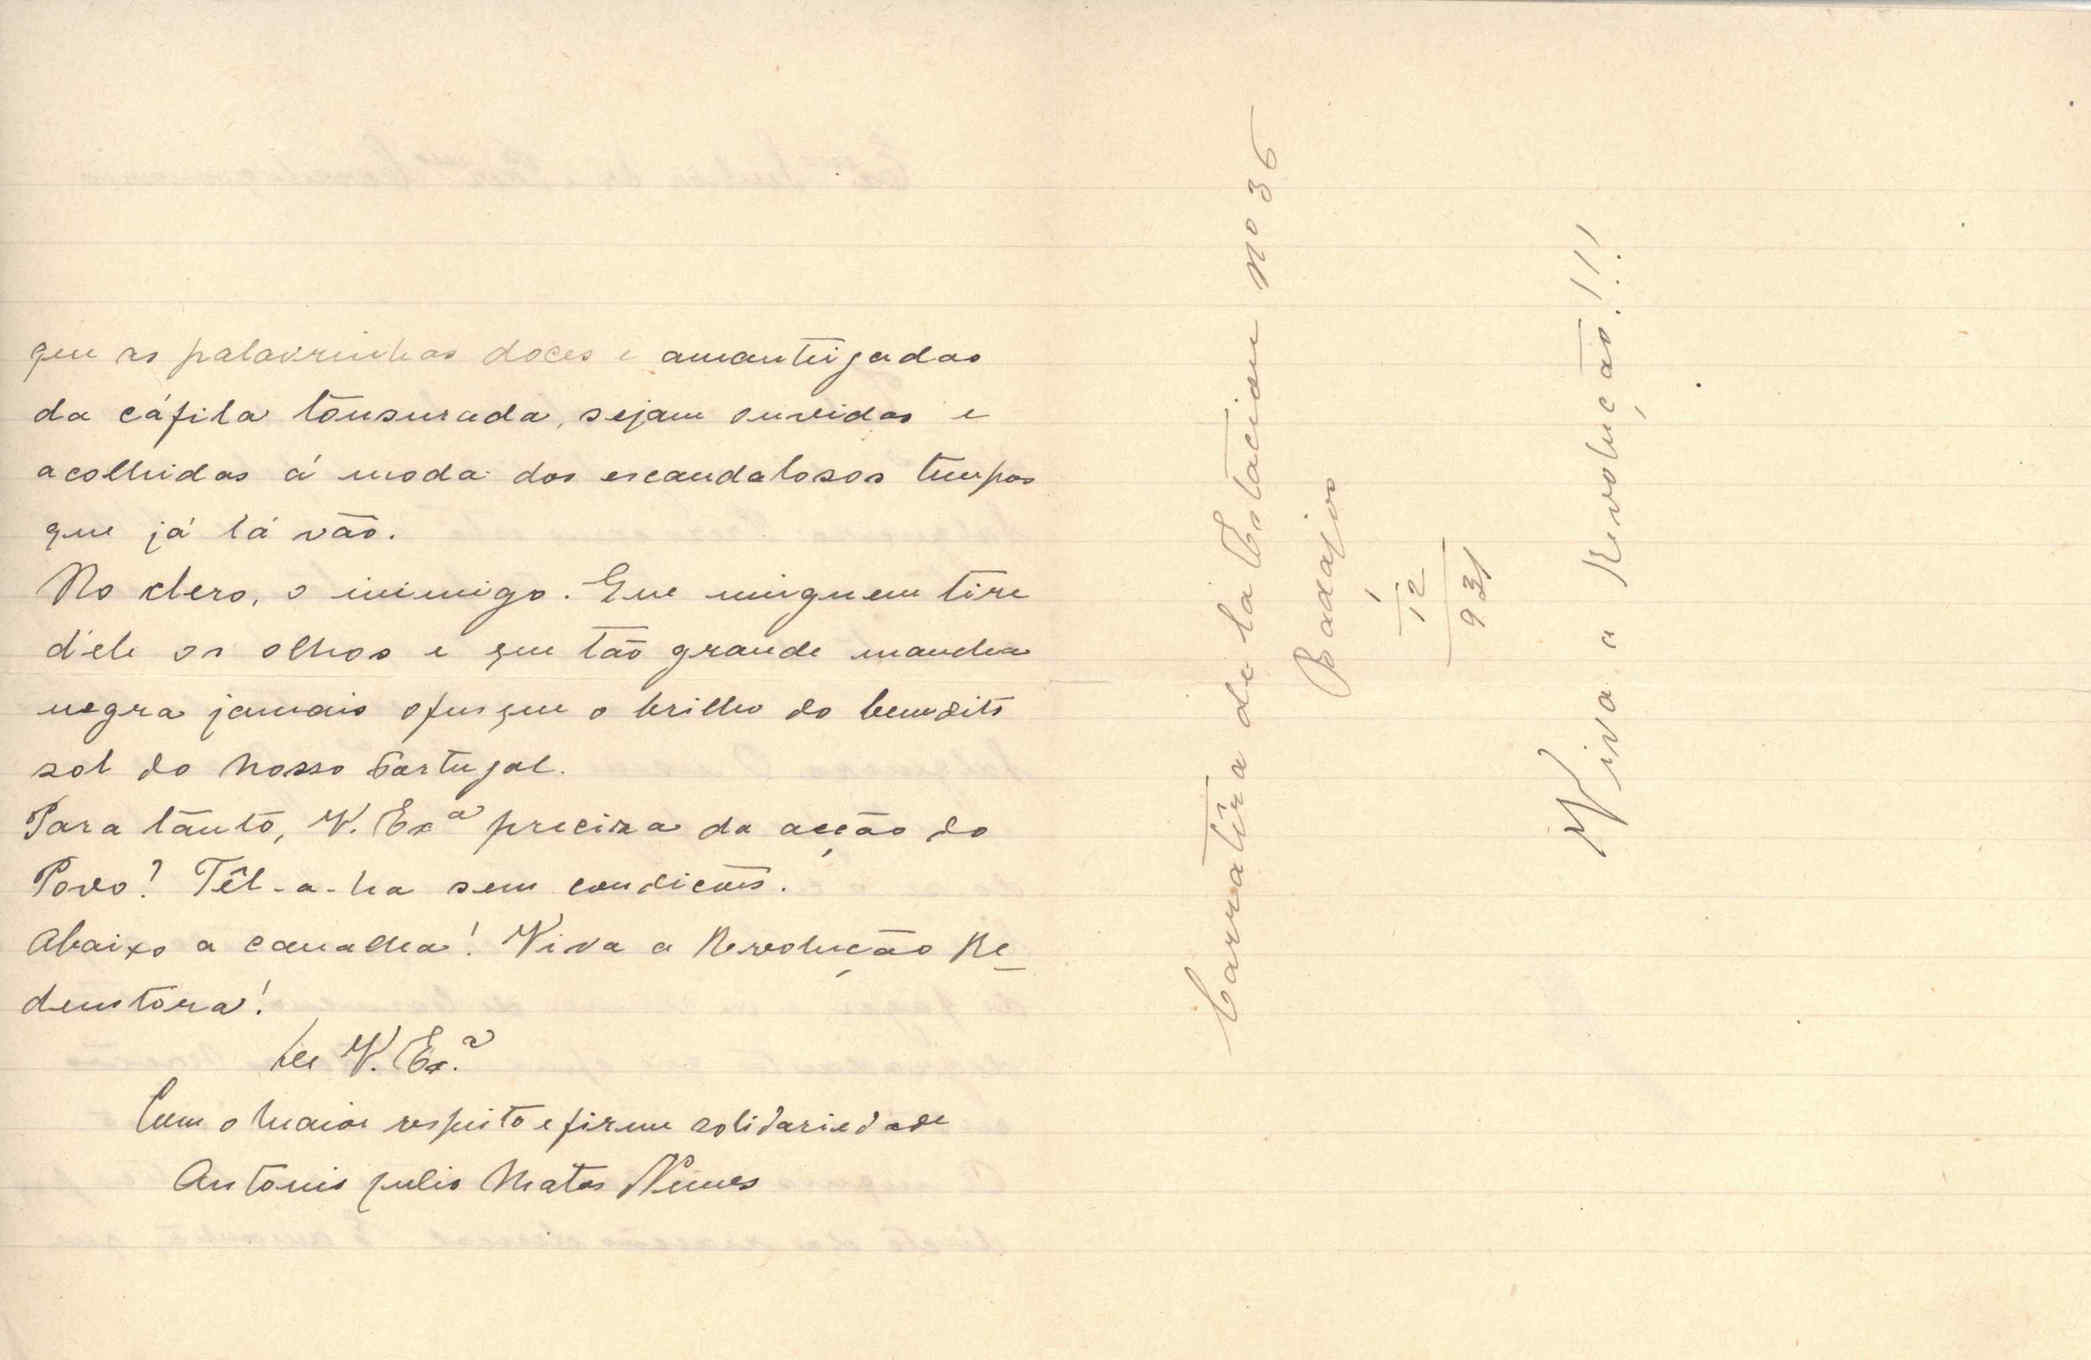 que as palavrinhas doces e amanteigadas
da cáfila tonsurada, sejam ouvidas e
acolhidas á moda dos escandalosos tempos
que já lá vão.
No clero, o inimigo. Que ninguem tire
d'ele os olhos e que tão grande mancha
negra jamais ofusque o brilho do bemdito
sol do nosso Portugal.
Para tanto, V. Exª precisa da acção do
Povo? Têl-a-ha sem condicões.
Abaixo a canalha! Viva a Revolução Re-
demtora!
De V. Ex.ª
Com o maior respeito e firme solidariedade
Antonio Julio Matos Nunes
Carratíra de la Estacion Nº 36
Badajos
1
12
931
Viva a Revolução!!!